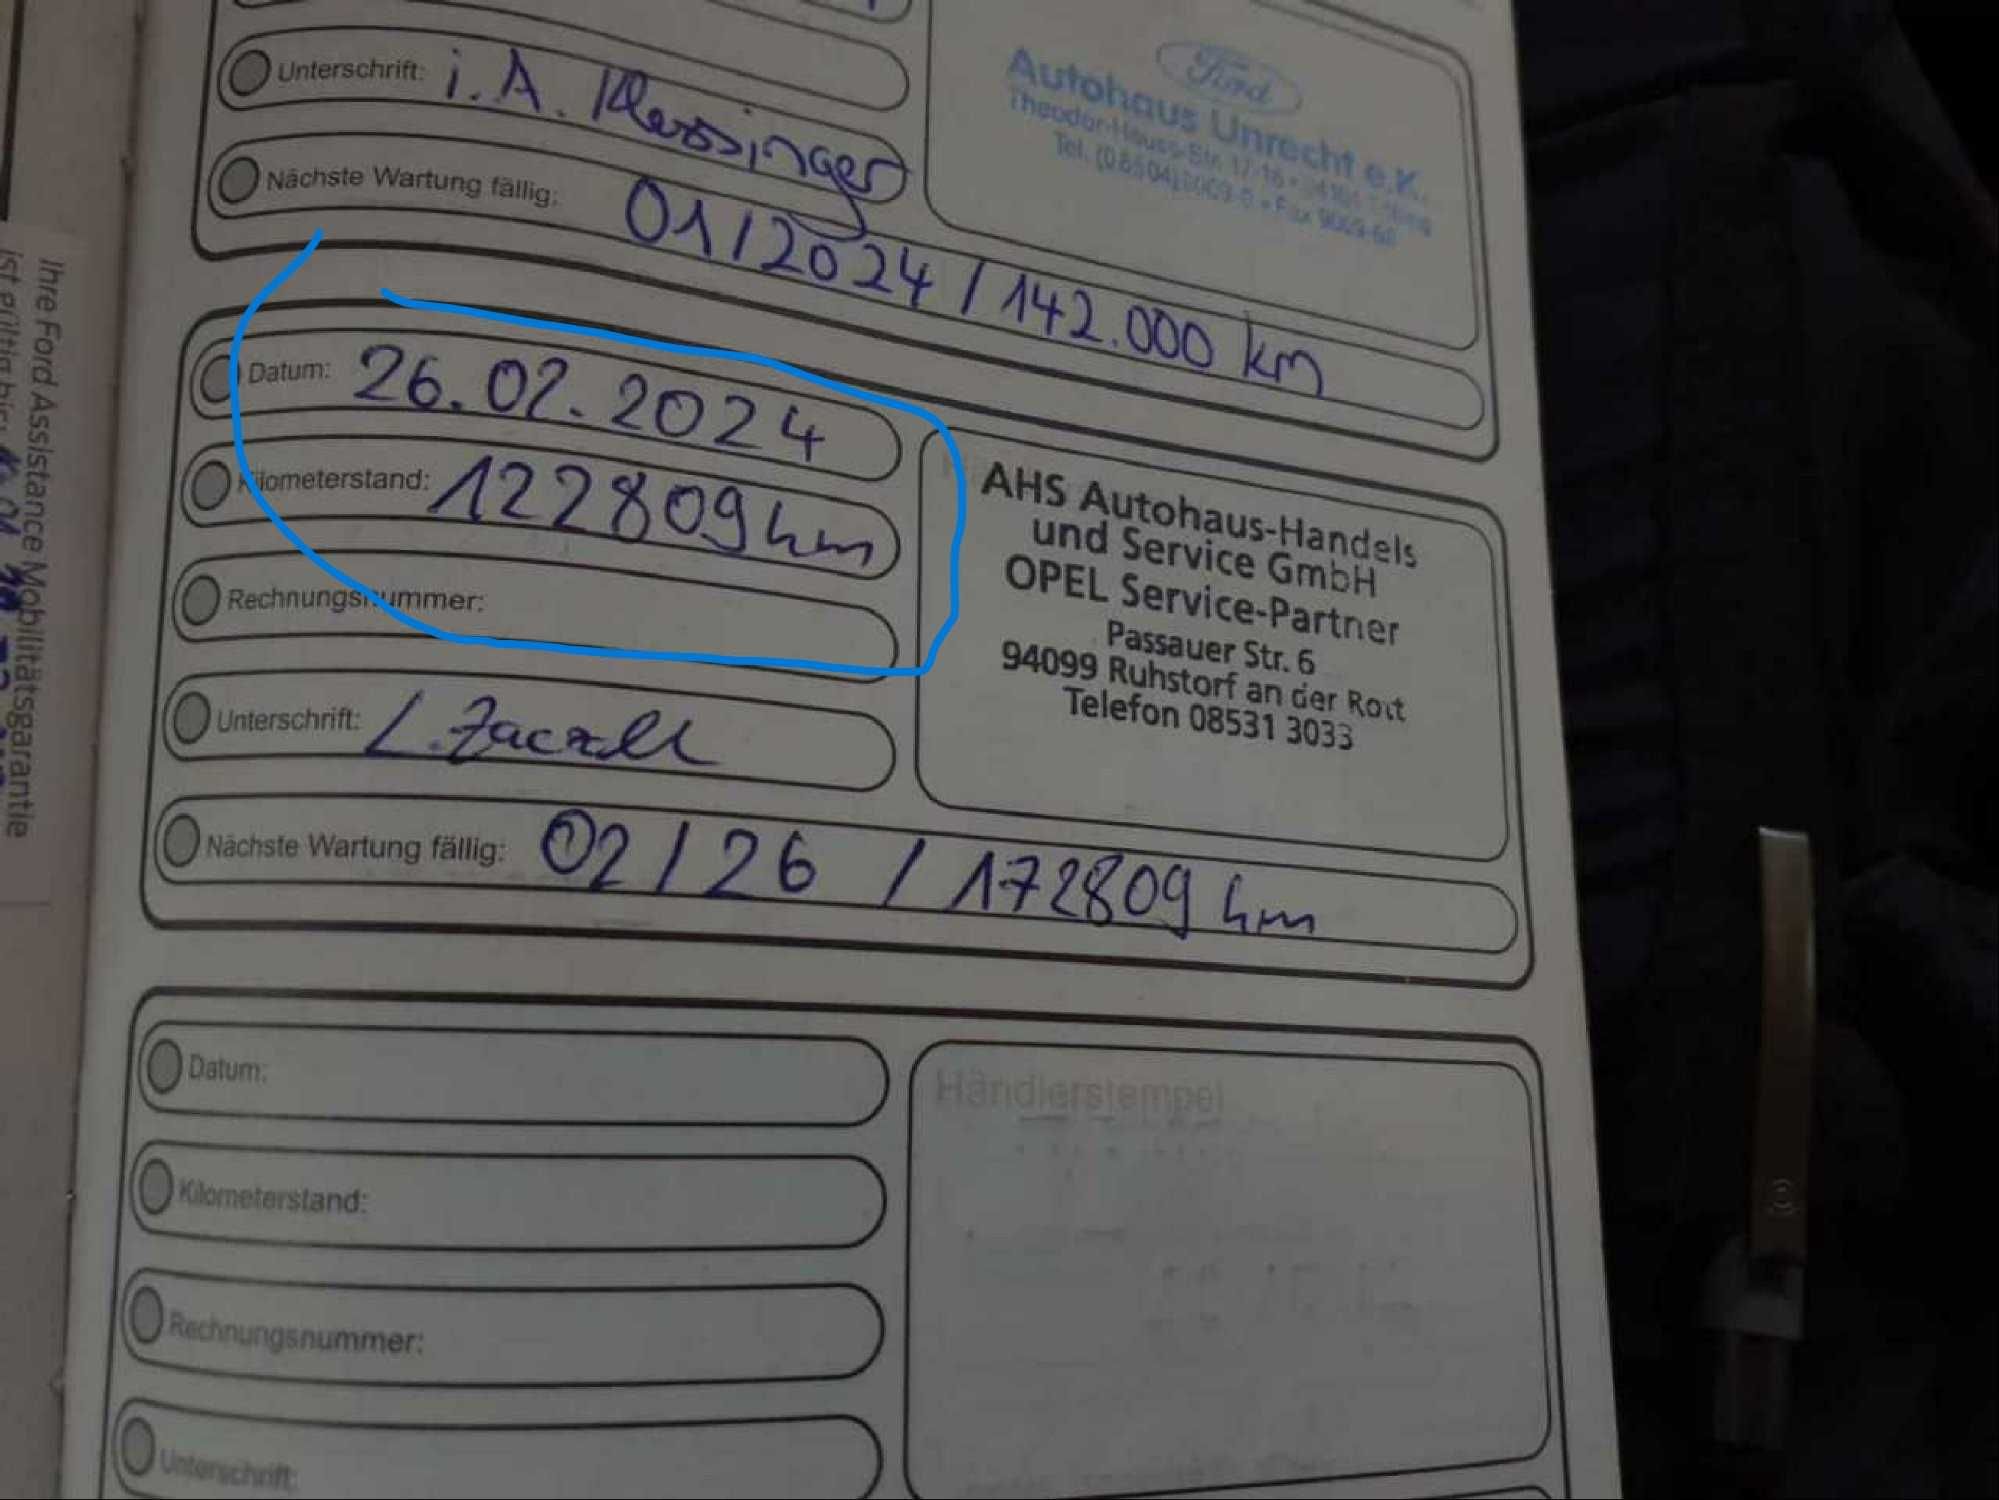 Unterschrift: i. A. Klessinger
Nächste Wartung fällig: 01/2024 / 142.000 km
Ford
Autohaus Unrecht e.K.
Theodor-Heuss-Str.
Tel. (08504) Fax
Datum: 26.02.2024
Kilometerstand: 122809 km
Rechnungsnummer:
Unterschrift: L.
Nächste Wartung fällig: 02/26 / 172809 km
AHS Autohaus-Handels
und Service GmbH
OPEL Service-Partner
Passauer Str. 6
94099 Ruhstorf an der Rott
Telefon 08531 3033
Datum:
Kilometerstand:
Rechnungsnummer:
Unterschrift:
Händlerstempel
Ihre Ford Assistance Mobilitätsgarantie
ist gültig bis: